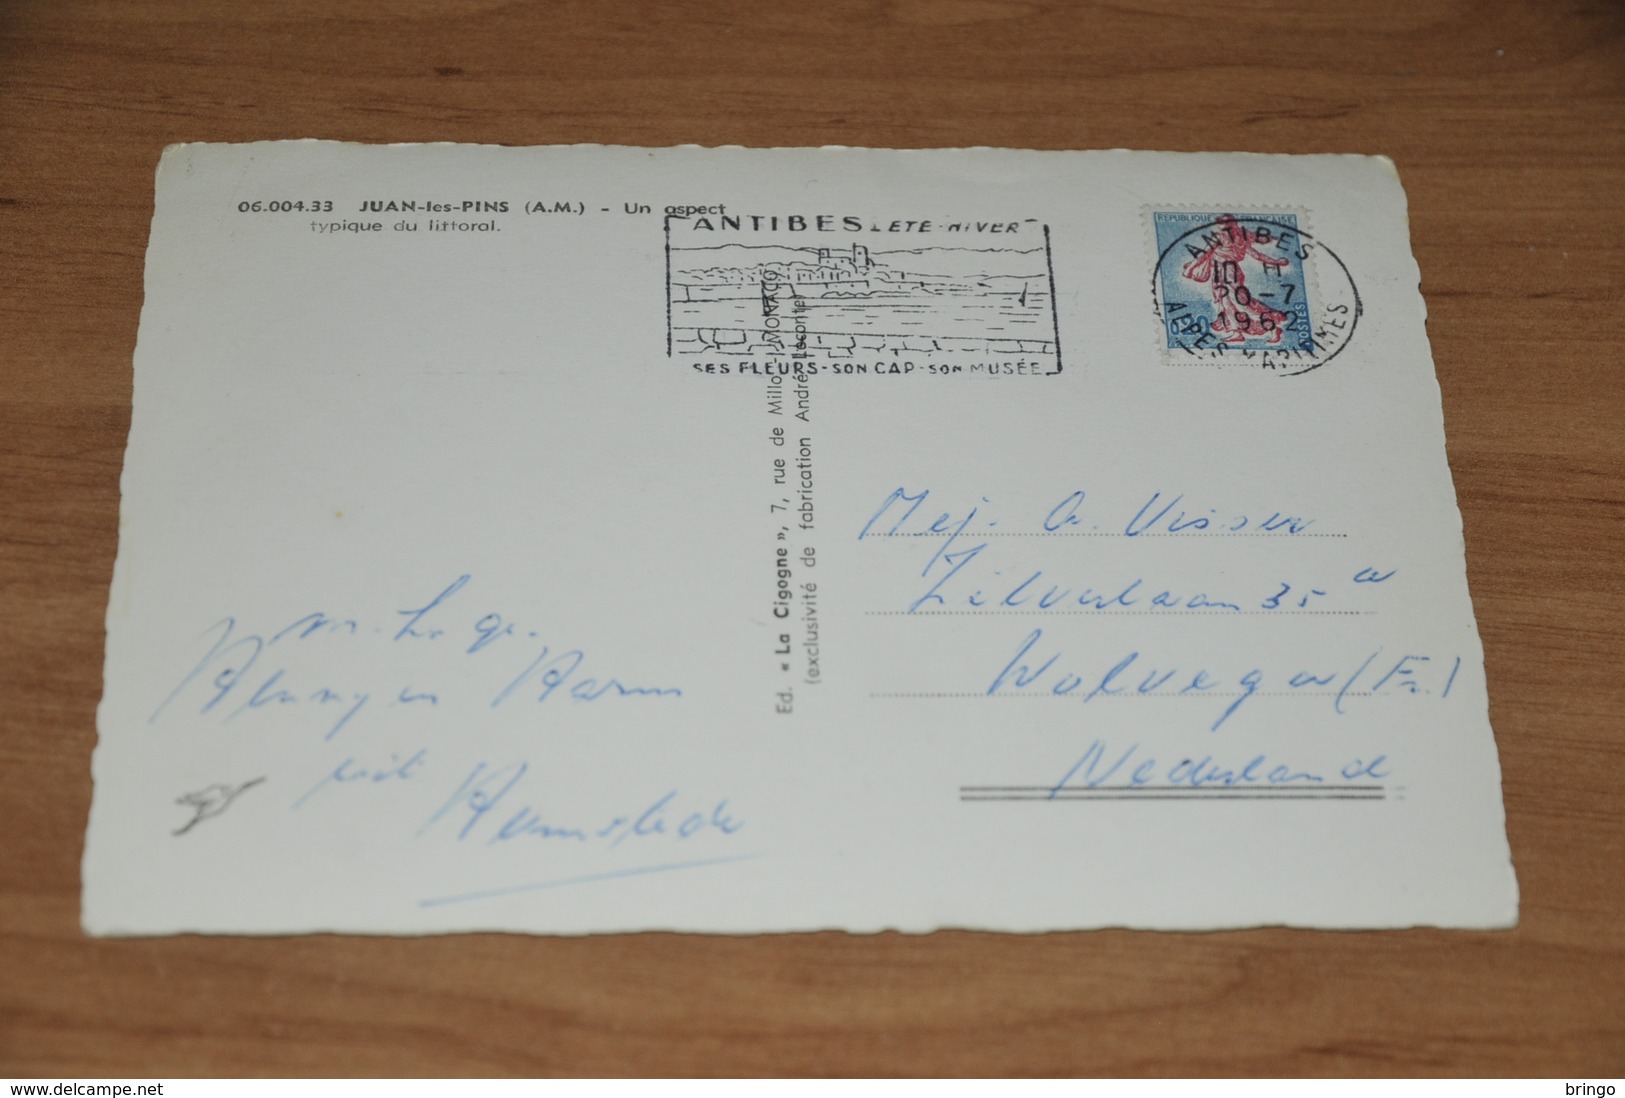 06.004.33 JUAN-les-PINS (A.M.) - Un aspect
typique du littoral.
ANTIBES ETE-HIVER
SES FLEURS-SON CAP-SON MUSÉE
REPUBLIQUE FRANÇAISE
0,20
POSTES
ANTIBES
10 H
20-7
1962
ALPES MARITIMES
Ed. « La Cigogne », 7, rue de Millo - MONACO
(exclusivité de fabrication André Leconte)
Mej. A. Visser
Zilverlaan 35 a
Wolvega (Fr.)
Nederland
vr. gr.
Harm
uit
Heemstede
www.delcampe.net
bringo